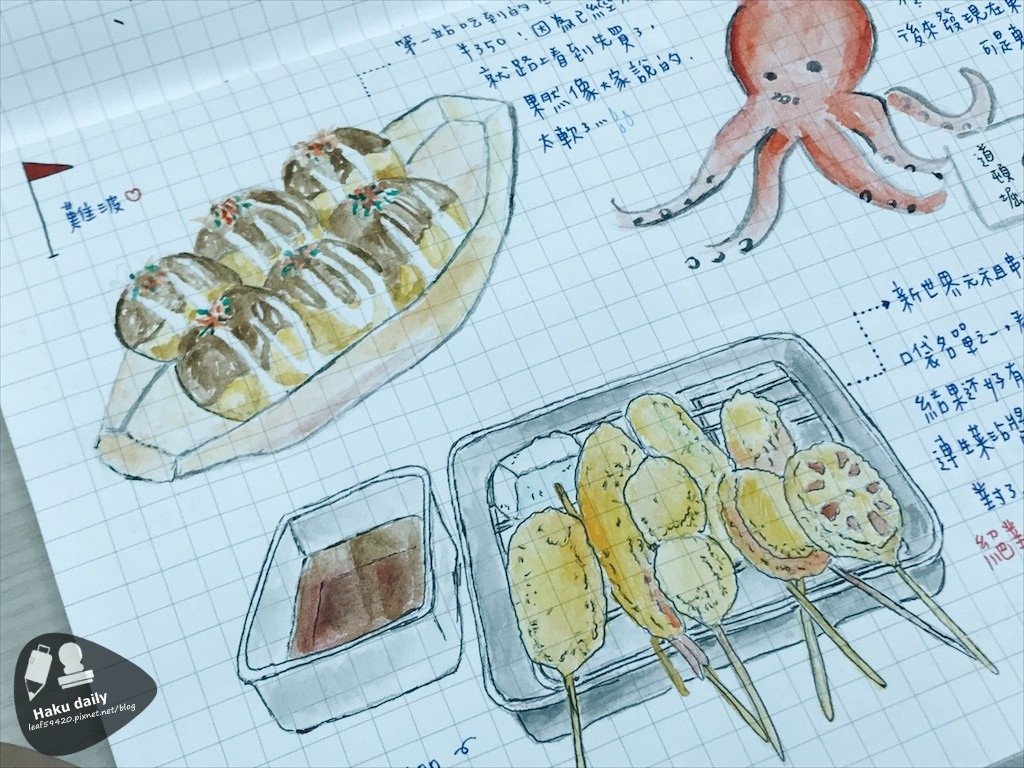 ¥350!因為已經
就路上看到先買了,
果然像大家說的.
太軟了...
難波♡
後來發現在
可是
道頓堀
新世界元祖串
口袋名單之一,
結果還好有
連生菜沾醬
對了
Haku daily
leaf59420.pixnet.net/blog